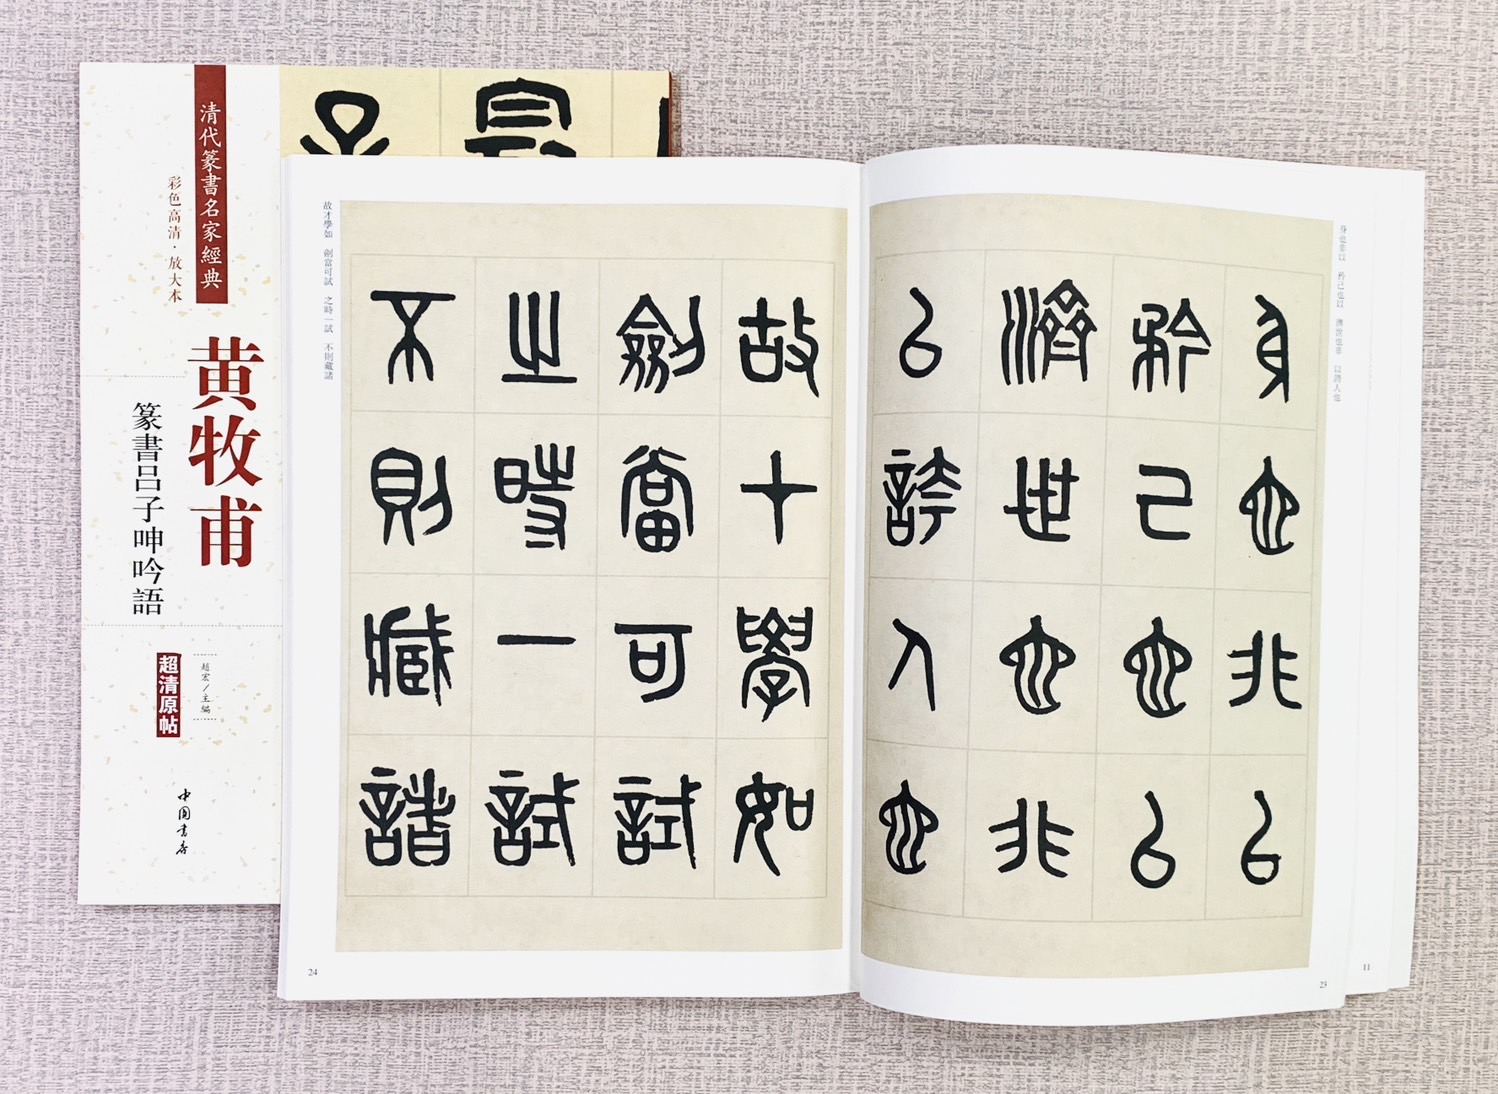 清代篆書名家經典
彩色高清·放大本
黄牧甫
篆書吕子呻吟語
趙宏/主編
超清原帖
中國書店
身也非以 矜己也以 濟世也非 以誇人也
身也非以
矜己也以
濟世也非
以誇人也
23
11
故才學如
劍當可試
之時一試
不則藏諸
故才學如 劍當可試 之時一試 不則藏諸
24